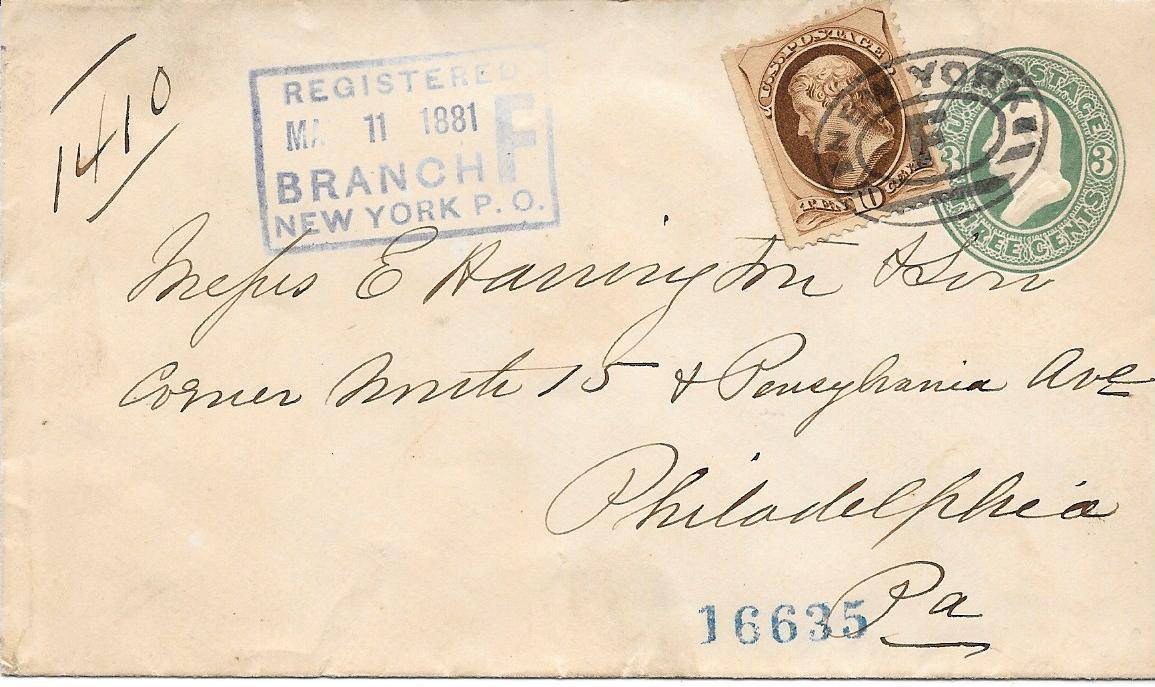 1410
REGISTERED
MA 11 1881
BRANCH F
NEW YORK P. O.
U.S. POSTAGE
10
NEW YORK
F
U.S. POSTAGE
3 3
THREE CENTS
Messrs E Harrington & Son
Corner North 15 & Pensylvania Ave
Philadelphia
Pa
16635